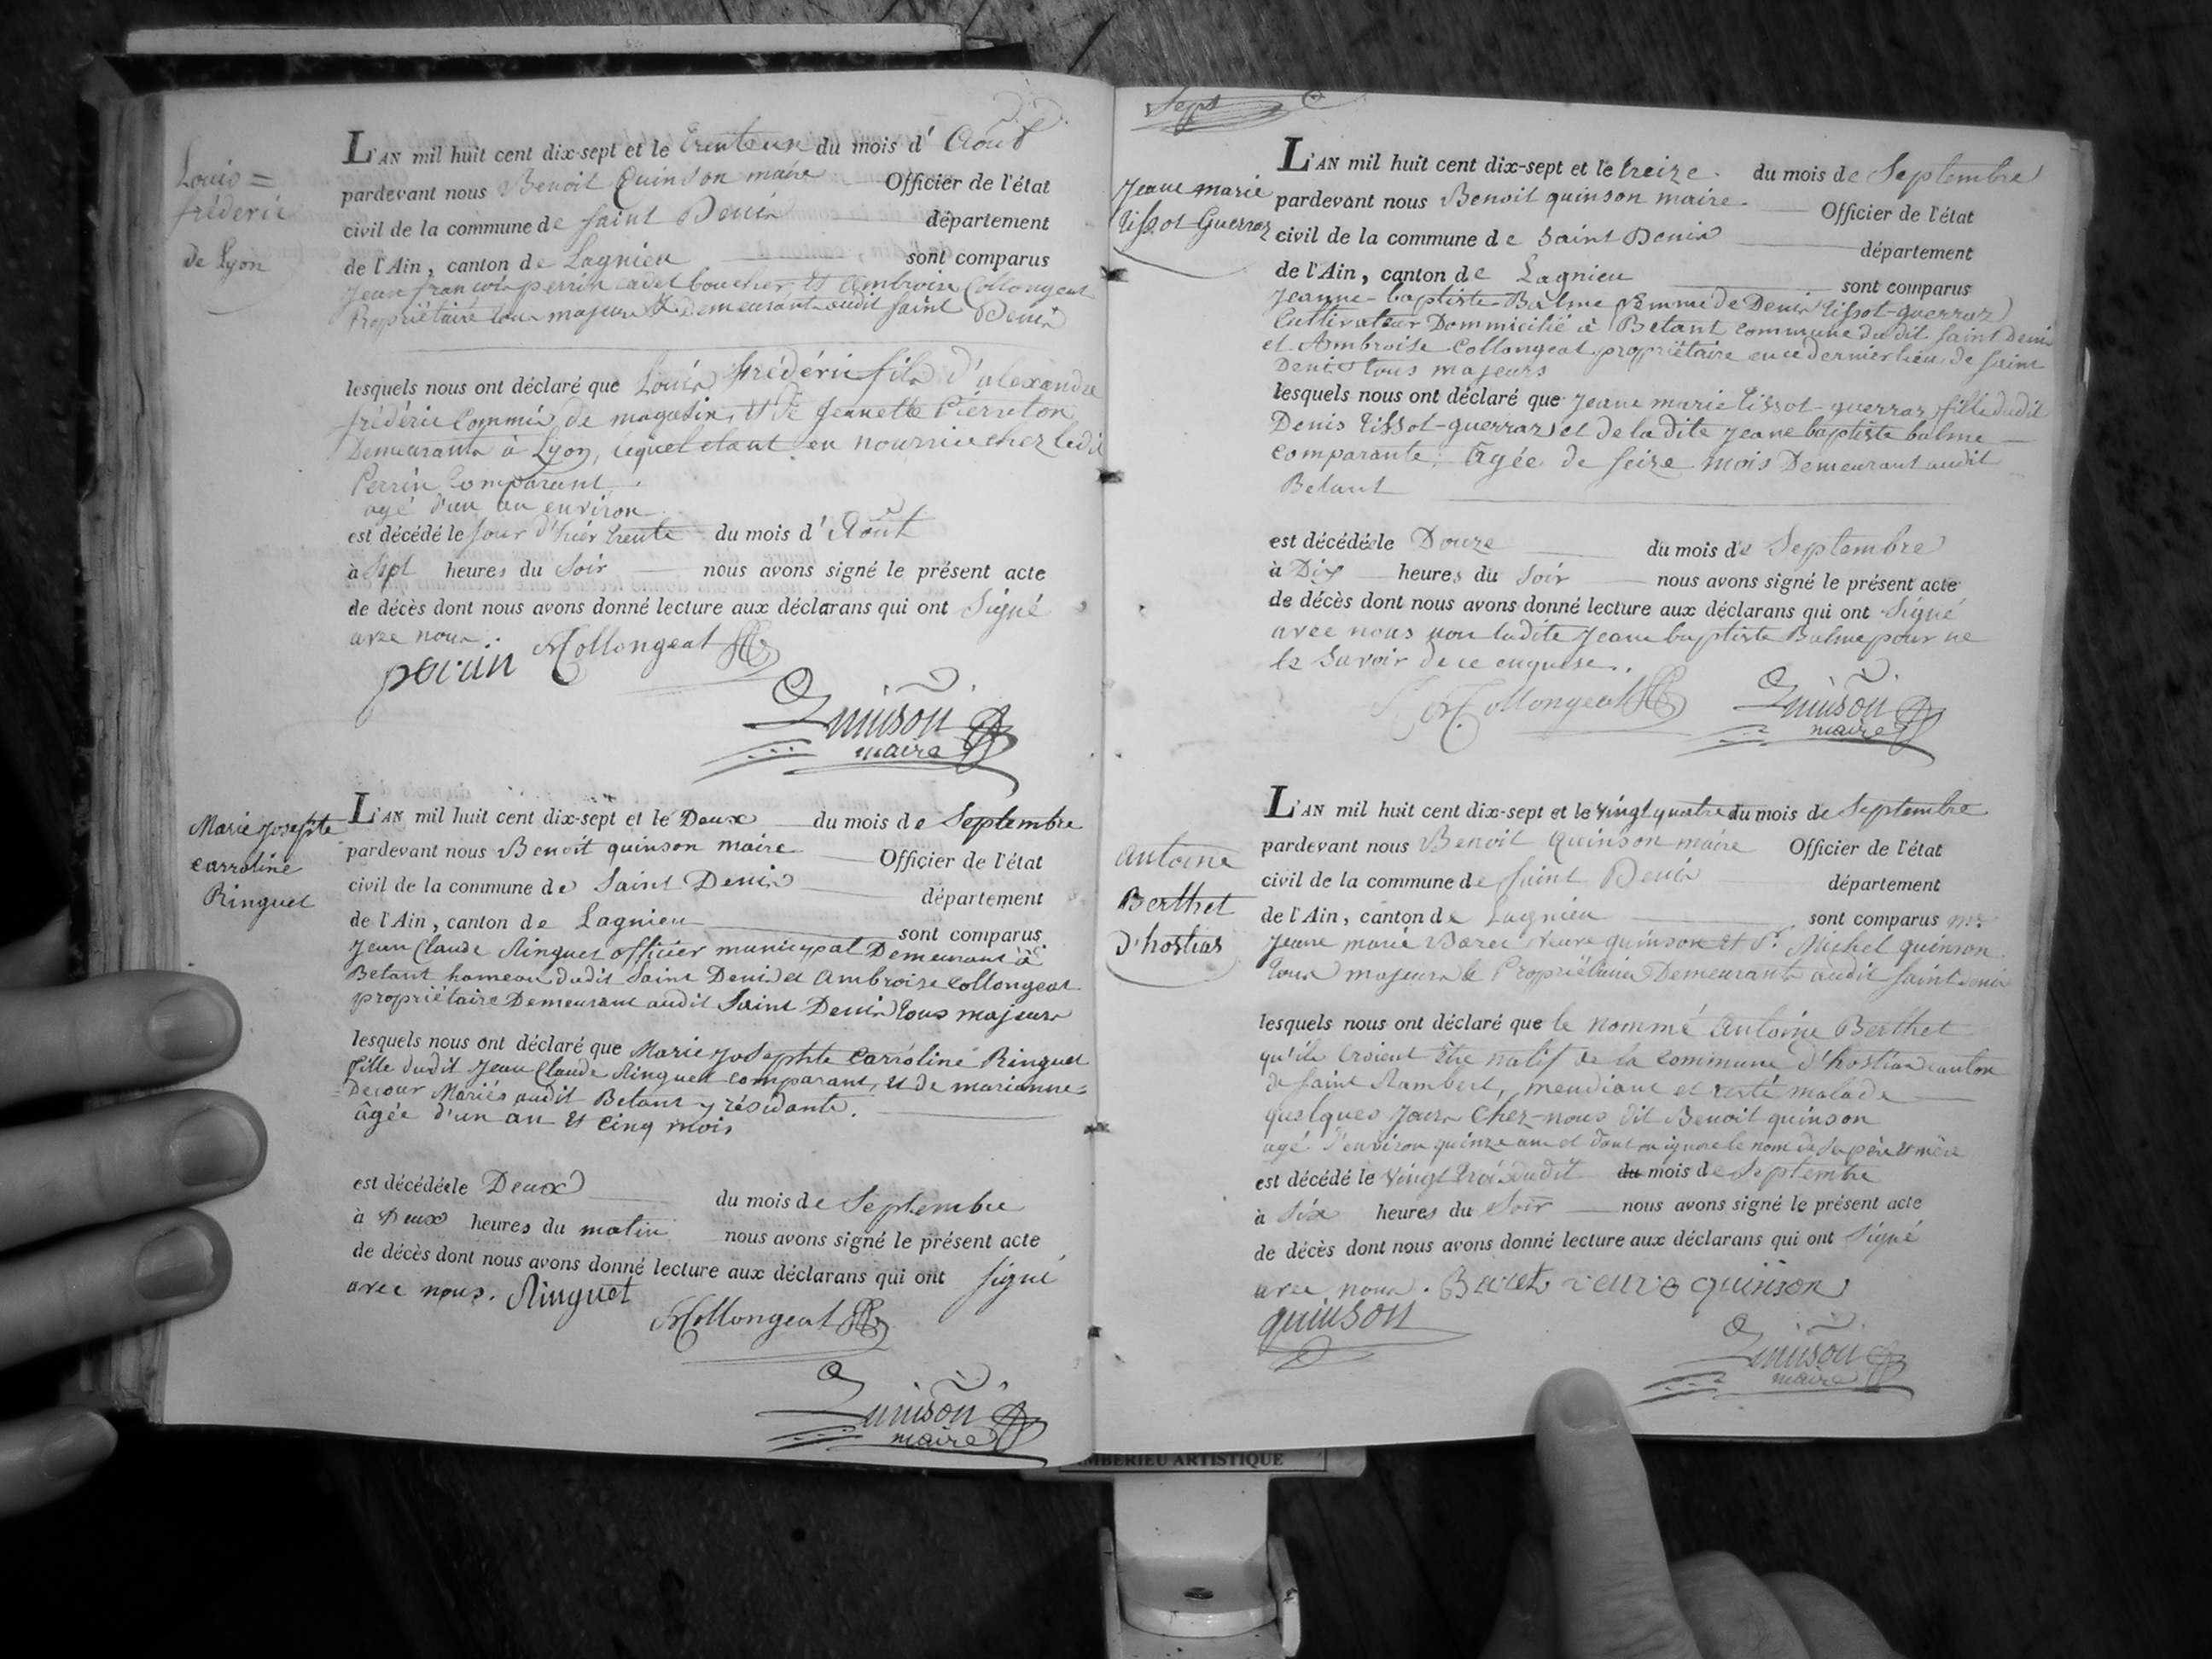 Louis =
fréderic
de Lyon
L'AN mil huit cent dix-sept et le trenteun du mois d'Aout
pardevant nous Benoit Quinson maire Officier de l'état
civil de la commune de Saint Denis département
de l'Ain, canton de Lagnieu sont comparus
Jean françois perrin cadet boucher, et Ambroise Collongeat
Propriétaire tous majeurs & demeurant audit Saint Denis
lesquels nous ont déclaré que Louis frédéric fils d'alexandre
frédéric Commis de magasin, et de Jeannette Pierreton
Demeurants à Lyon, lequel etant en nourrice chez ledit
Perrin Comparant
agé d'un an environ
est décédé le jour d'hier trente du mois d'Août
à sept heures du soir nous avons signé le présent acte
de décès dont nous avons donné lecture aux déclarans qui ont Signé
avec nous.
perrin ACollongeat
Quinson
maire
Marie Josephte
carroline
Ringuet
L'AN mil huit cent dix-sept et le Deux du mois de Septembre
pardevant nous Benoit quinson maire Officier de l'état
civil de la commune de Saint Denis département
de l'Ain, canton de Lagnieu sont comparus
Jean Claude Ringuet officier municipal Demeurant à
Betant hameau dudit Saint Denis et Ambroise Collongeat
propriétaire Demeurant audit Saint Denis tous majeurs
lesquels nous ont déclaré que Marie Josephte Carroline Ringuet
fille dudit Jean Claude Ringuet comparant, et de marianne=
=Decour Mariés audit Betant y résidants.
âgée d'un an et cinq mois
est décédée le Deux du mois de Septembre
à Deux heures du matin nous avons signé le présent acte
de décès dont nous avons donné lecture aux déclarans qui ont signé
avec nous. Ringuet
ACollongeat
Quinson
maire
Sept
Jeane marie
tissot Guerraz
L'AN mil huit cent dix-sept et le treize du mois de Septembre
pardevant nous Benoit quinson maire Officier de l'état
civil de la commune de Saint Denis département
de l'Ain, canton de Lagnieu sont comparus
Jeanne-baptiste-Balme femme de Denis tissot-guerraz
Cultivateur Dommicilié à Betant commune dudit Saint Denis
et Ambroise Collongeat propriétaire en ce dernier lieu de Saint
Denis tous majeurs
lesquels nous ont déclaré que Jeane marie tissot-guerraz fille dudit
Denis tissot-guerraz et de la dite Jeane baptiste balme
comparante, Agée de seize mois Demeurant audit
Betant
est décédée le Douze du mois de Septembre
à Dix heures du Soir nous avons signé le présent acte
de décès dont nous avons donné lecture aux déclarans qui ont Signé
avec nous non ladite Jeane baptiste Balme pour ne
le Savoir de ce enquise.
ACollongeat Quinson
maire
antoine
Berthet
d'hostias
L'AN mil huit cent dix-sept et le vingt quatre du mois de Septembre
pardevant nous Benoit Quinson maire Officier de l'état
civil de la commune de Saint Denis département
de l'Ain, canton de Lagnieu sont comparus
Jeane marie Baret veuve quinson et Sr. Michel quinson
tous majeurs & Propriétaires Demeurants audit Saint Denis
lesquels nous ont déclaré que le nommé Antoine Berthet
qu'ils croient être natif de la commune d'hostias canton
de Saint Rambert, mendiant et resté malade
quelques Jours Chez-nous dit Benoit quinson
agé d'environ quinze ans et dont on ignore le nom de ses père et mère
est décédé le vingt trois dudit du mois de Septembre
à Six heures du Soir nous avons signé le présent acte
de décès dont nous avons donné lecture aux déclarans qui ont Signé
avec nous. Baret veuve quinson
quinson
Quinson
maire
MBERIEU ARTISTIQUE